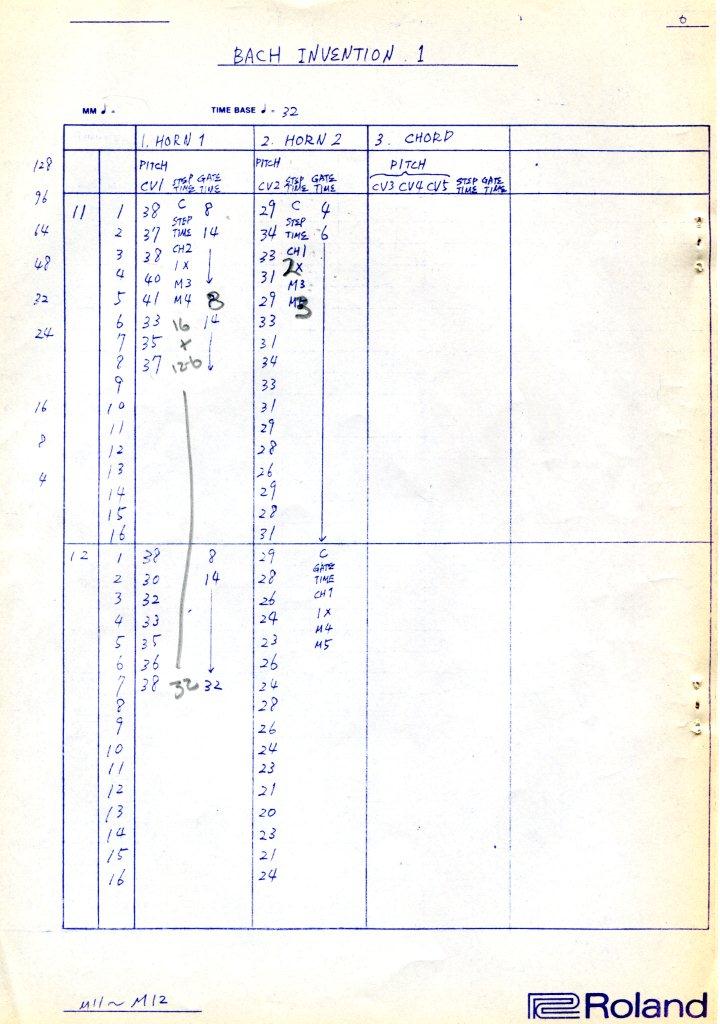 6
BACH INVENTION. 1
MM ♩ = TIME BASE ♩ = 32
1. HORN 1 2. HORN 2 3. CHORD
128 PITCH PITCH PITCH
CV1 STEP TIME GATE TIME CV2 STEP TIME GATE TIME CV3 CV4 CV5 STEP TIME GATE TIME
96
11 1 38 C 8 29 C 4
STEP STEP
64 2 37 TIME 14 34 TIME 6
3 38 CH2 33 CH1
48 1X 2X
4 40 M3 31 M3
32 5 41 M4 8 29 3
6 33 16 14 33
24 7 35 X 31
8 37 12-6 34
9 33
16 10 31
11 29
8 12 28
13 26
4 14 29
15 28
16 31
12 1 38 8 29 C
GATE
2 30 14 28 TIME
3 32 26 CH1
4 33 24 1X
M4
5 35 23 M5
6 36 26
7 38 32 32 24
8 28
9 26
10 24
11 23
12 21
13 20
14 23
15 21
16 24
M11~M12
Roland